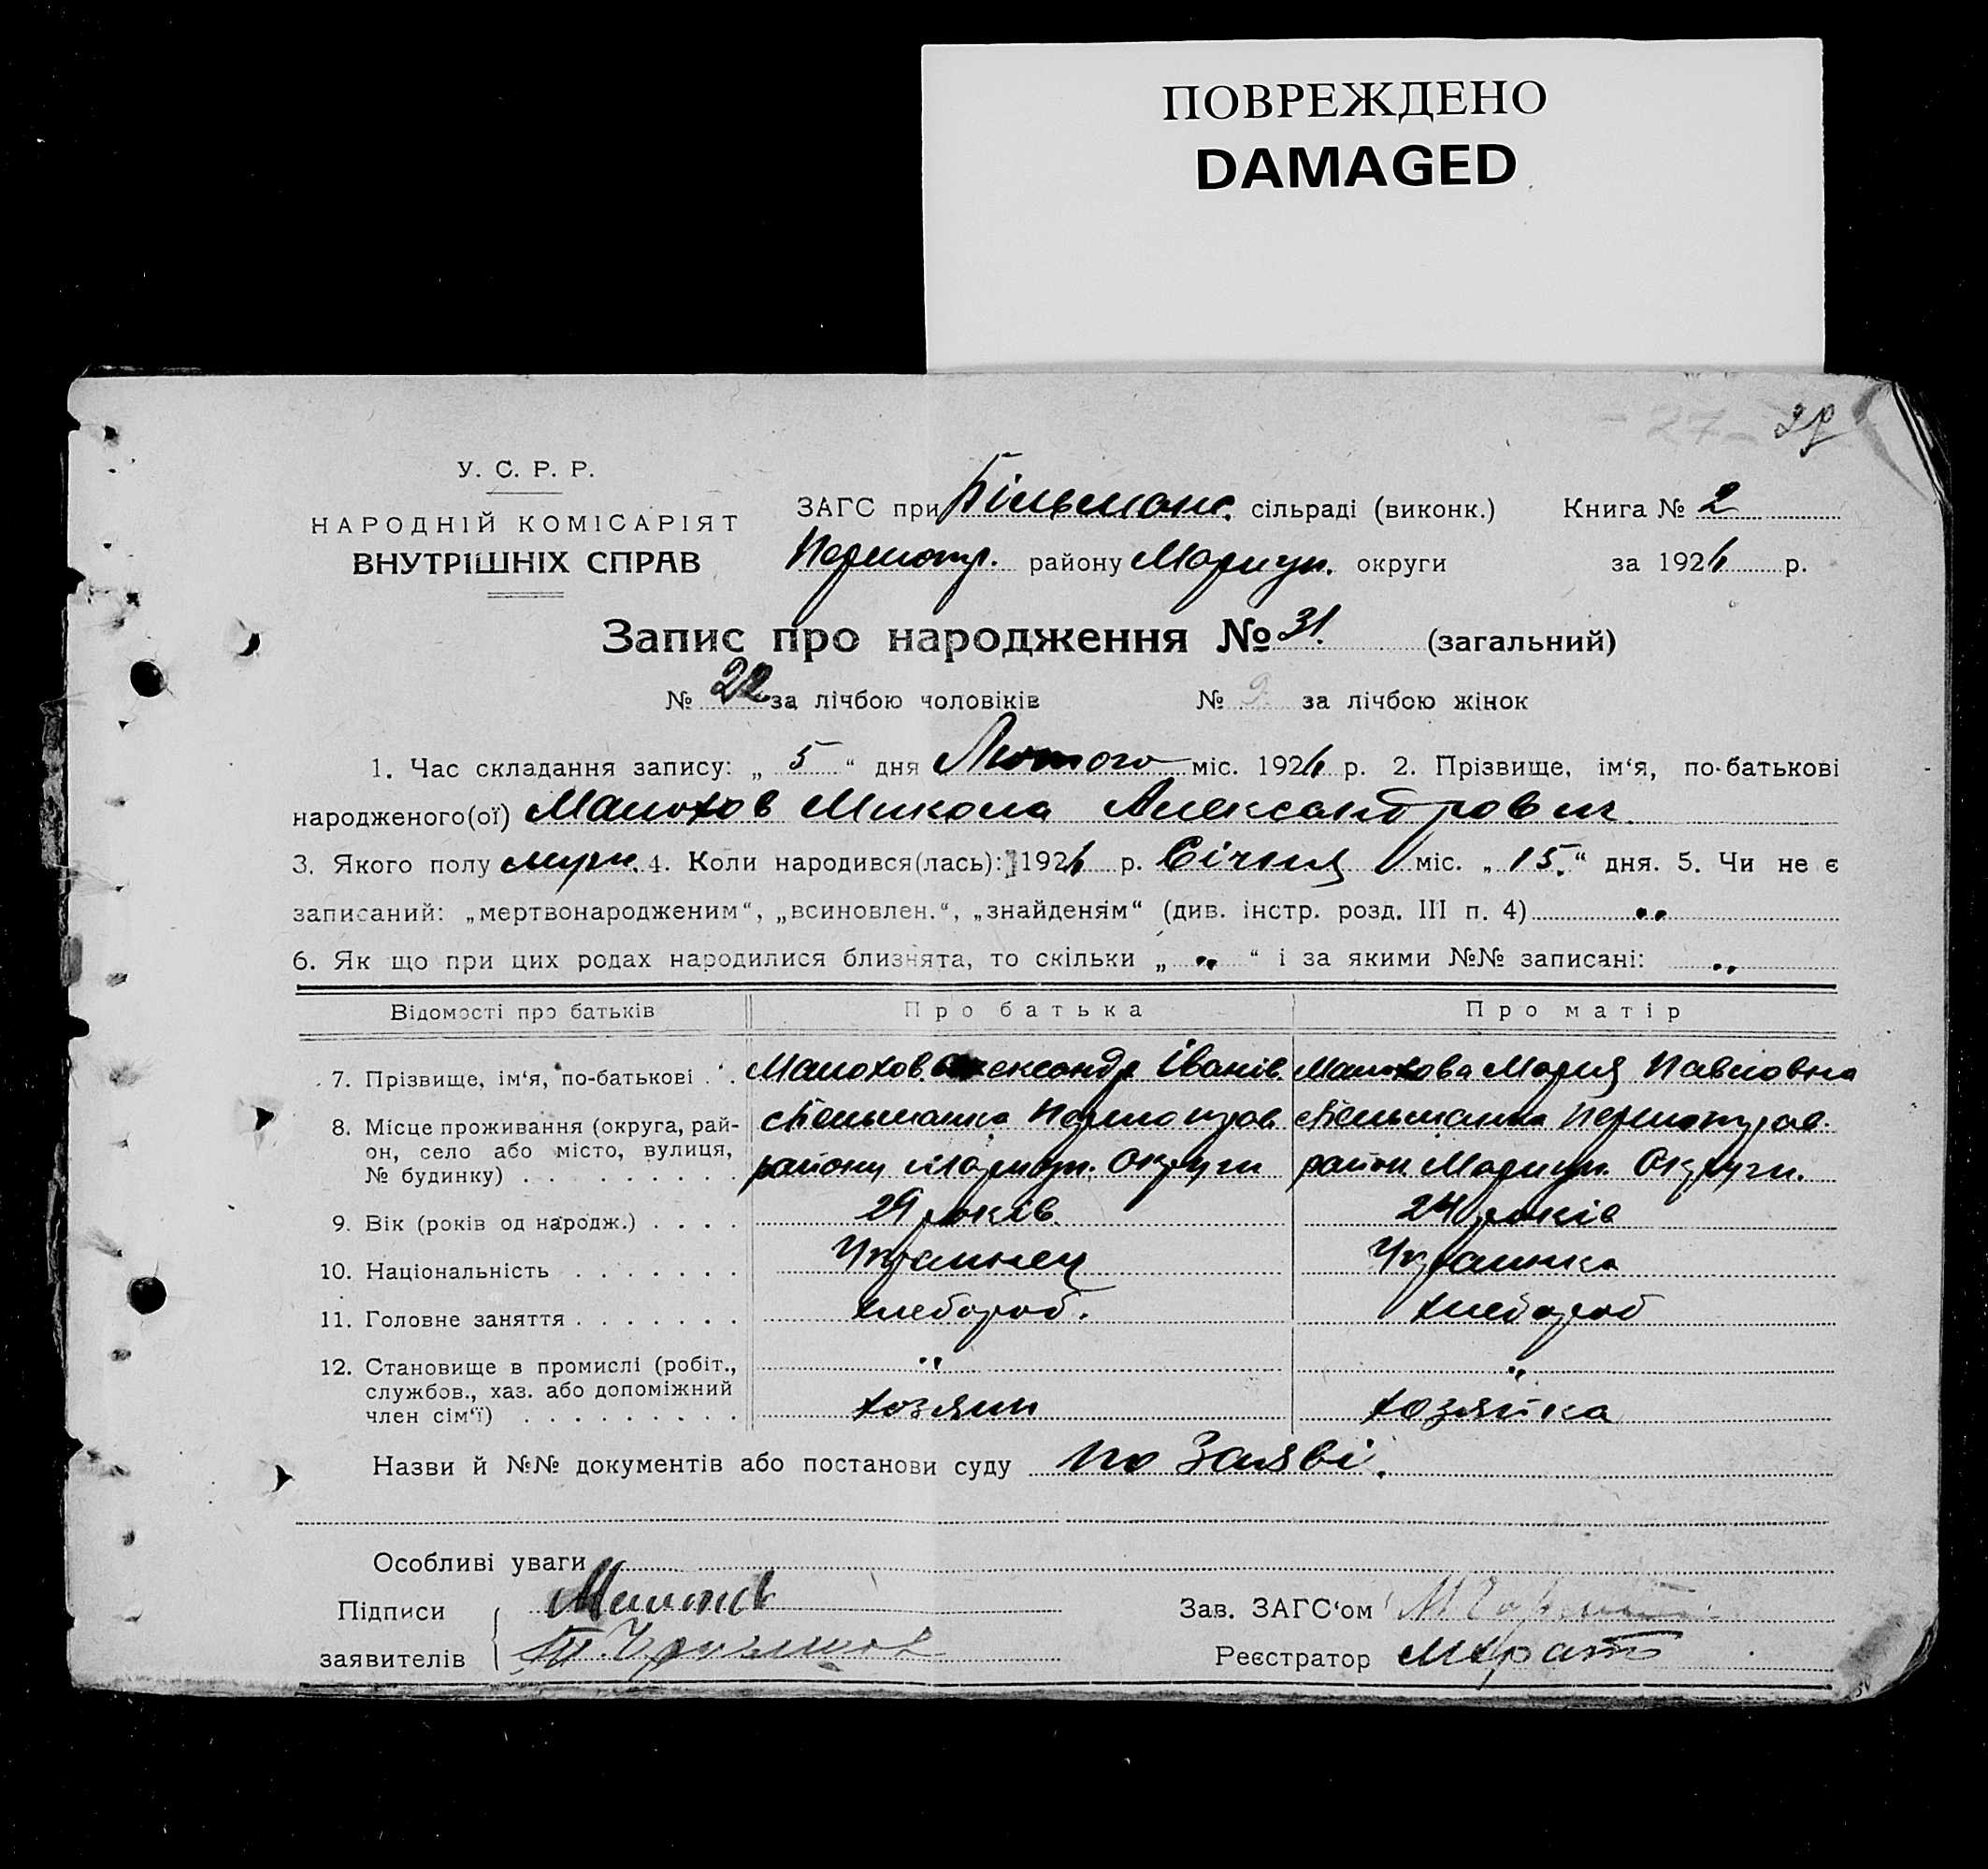 ПОВРЕЖДЕНО
DAMAGED
- 27 -
У. С. Р. Р.
НАРОДНІЙ КОМІСАРІЯТ
ВНУТРІШНІХ СПРАВ
ЗАГС при Більманс. сільраді (виконк.) Книга № 2
району Маріуп. округи за 1926 р.
Запис про народження № 31. (загальний)
№ 22 за лічбою чоловіків № 9 за лічбою жінок
1. Час складання запису: „ 5 “ дня Лютого міс. 1926 р. 2. Прізвище, ім‘я, по-батькові
народженого(ої) Малохов Микола Александрович
3. Якого полу муж. 4. Коли народився(лась): 1926 р. Січня міс. „ 15. “ дня. 5. Чи не є
записаний: „мертвонародженим“, „всиновлен.“, „знайденям“ (див. інстр. розд. III п. 4) „
6. Як що при цих родах народилися близнята, то скільки „ „ “ і за якими №№ записані: „
Відомості про батьків Про батька Про матір
7. Прізвище, ім‘я, по-батькові . . Малохов Олександр Іванів. Малохова Мария Павловна
8. Місце проживання (округа, рай-
он, село або місто, вулиця,
№ будинку) . . . . . . . . .
с Бельманка с Бельманка
району Мариуп. Округи район Мариуп. Округи.
9. Вік (років од народж.) . . . . 29 років 24 років
10. Національність . . . . . . . Украинец Украинка
11. Головне заняття . . . . . . . хлебороб. хлебороб
12. Становище в промислі (робіт., „ „
службов., хаз. або допоміжний
член сім‘ї) . . . . . . . . . хозяин хозяйка
Назви й №№ документів або постанови суду по Заяві.
Особливі уваги
Підписи
заявителів
Зав. ЗАГС‘ом
Реєстратор